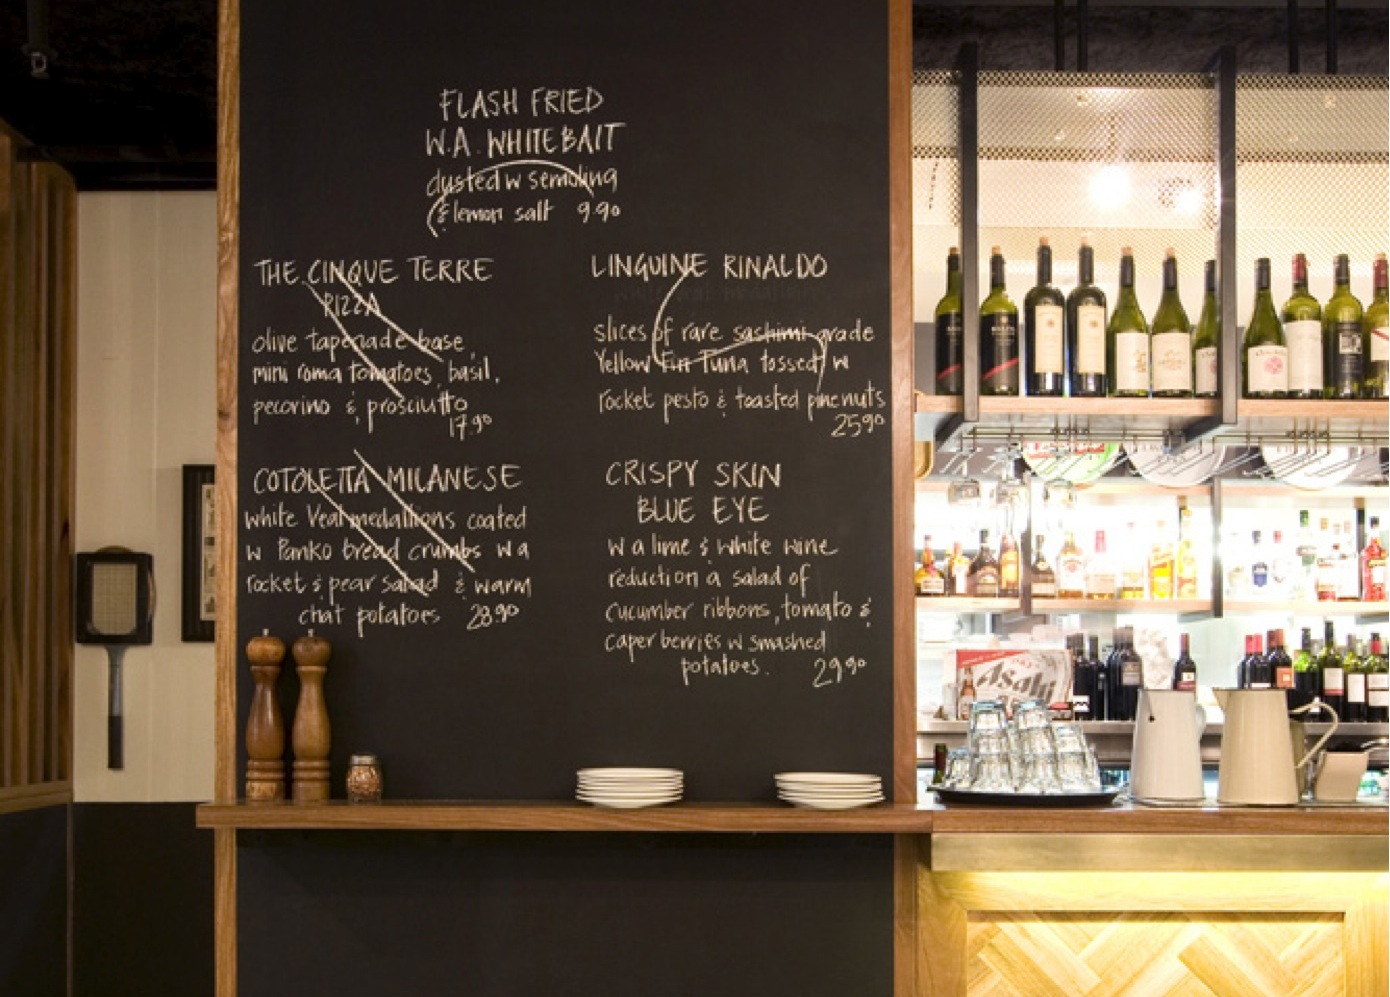 FLASH FRIED
W.A. WHITEBAIT
dusted w semolina
& lemon salt 9.90
THE CINQUE TERRE
PIZZA
olive tapenade base,
mini roma tomatoes, basil,
pecorino & prosciutto
17.90
COTOLETTA MILANESE
white Veal medallions coated
w Panko bread crumbs w a
rocket & pear salad & warm
chat potatoes 28.90
LINGUINE RINALDO
slices of rare sashimi grade
Yellow Fin Tuna tossed w
rocket pesto & toasted pinenuts
25.90
CRISPY SKIN
BLUE EYE
w a lime & white wine
reduction a salad of
cucumber ribbons, tomato &
caper berries w smashed
potatoes. 29.90
Asahi